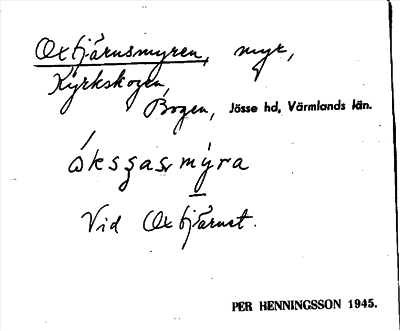 Oxtjärnsmyren, myr,
Kyrkskogen,
Bogen, Jösse hd, Värmlands län.
mýra
Vid Oxtjärnet.
PER HENNINGSSON 1945.